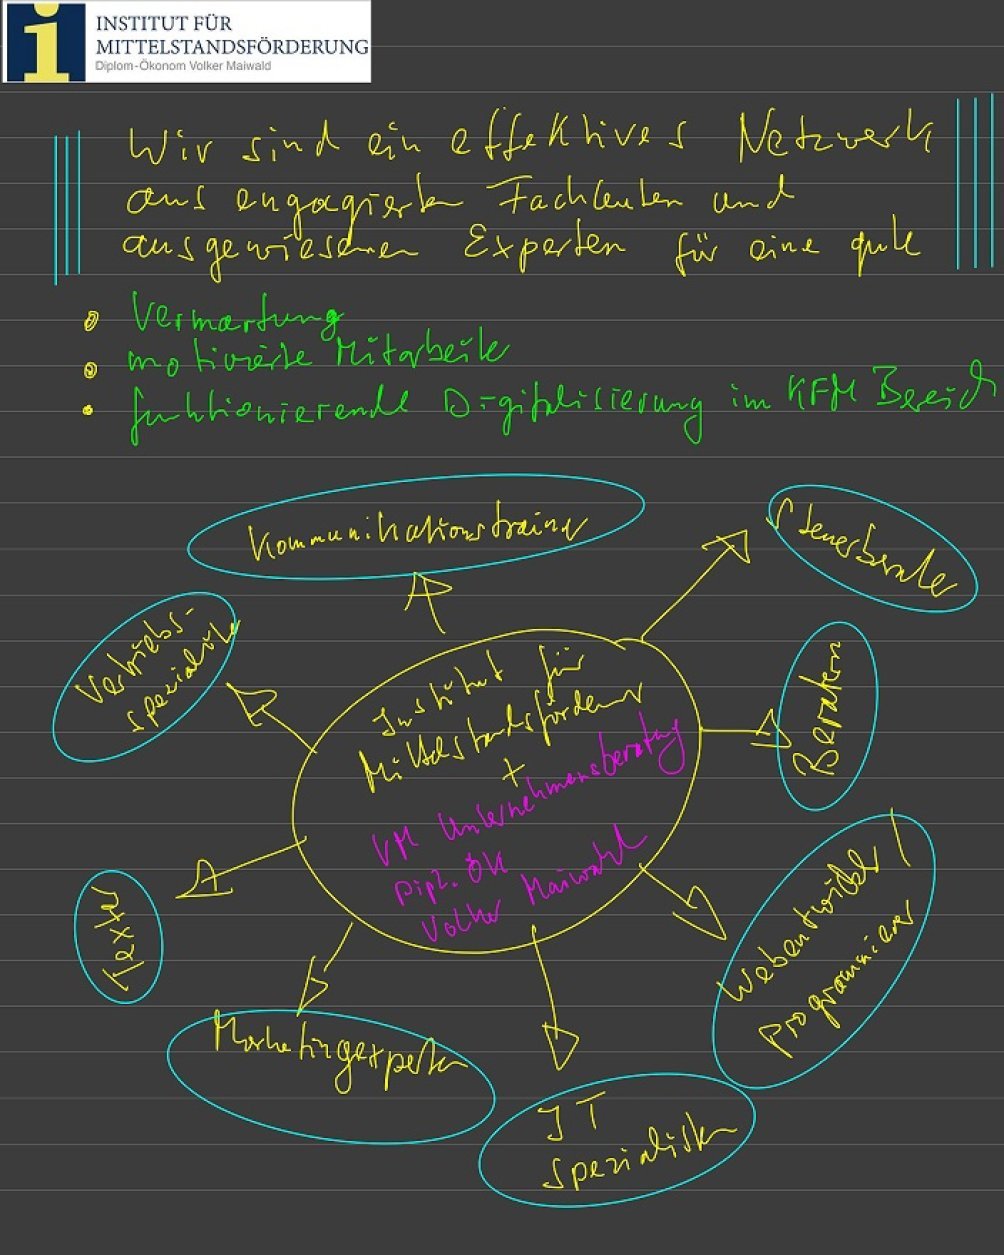 INSTITUT FÜR
MITTELSTANDSFÖRDERUNG
Diplom-Ökonom Volker Maiwald
Wir sind ein effektives Netzwerk
aus engagierten Fachleuten und
ausgewiesenen Experten für eine gute
Vermarktung
motivierte Mitarbeiter
funktionierende Digitalisierung im KFM Bereich
Kommunikationstrainer
Steuerberater
Vertriebs-
spezialisten
Institut für
Mittelstandsförderung
+
VM Unternehmensberatung
Dipl. ÖK
Volker Maiwald
Beratern
Webentwickler /
Programmierer
Texter
Marketingexperten
IT
Spezialisten